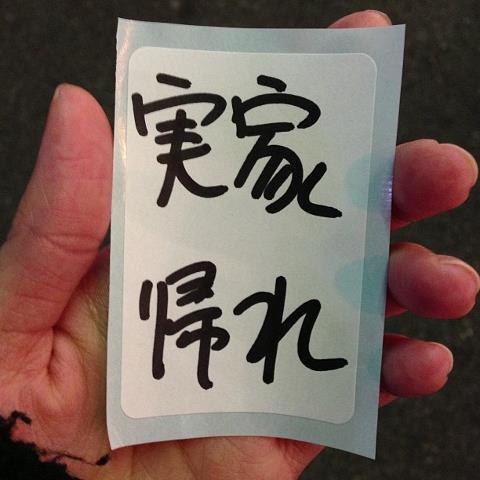 実家
帰れ